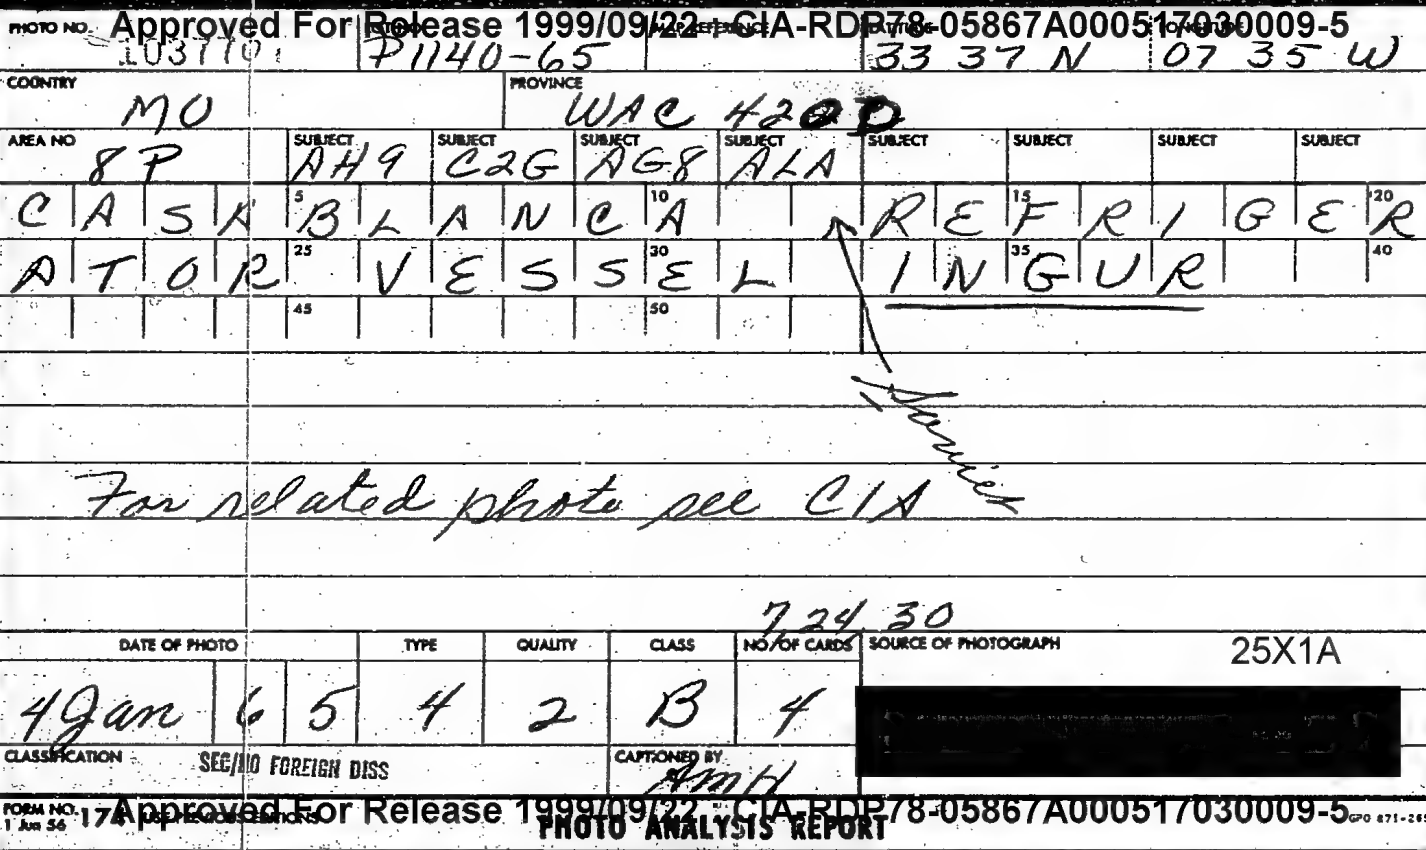 Approved For Release 1999/09/22 : CIA-RDP78-05867A000517030009-5
PHOTO NO. 1037701 P1140-65 33 37 N 07 35 W
COUNTRY MO PROVINCE WAC 420D
AREA NO 8P SUBJECT AH9 SUBJECT C2G SUBJECT AG8 SUBJECT ALA SUBJECT SUBJECT SUBJECT SUBJECT
CASABLANCA REFRIGER
5 10 15 20
ATOR VESSEL INGUR
25 30 35 40
45 50
Soviet
For related photo see CIA
72430
DATE OF PHOTO TYPE QUALITY CLASS NO. OF CARDS SOURCE OF PHOTOGRAPH 25X1A
4 Jan 65 4 2 B 4
CLASSIFICATION SEC/NO FOREIGN DISS CAPTIONED BY AMH
FORM NO. 174
1 Jun 56
Approved For Release 1999/09/22 : CIA-RDP78-05867A000517030009-5
PHOTO ANALYSIS REPORT